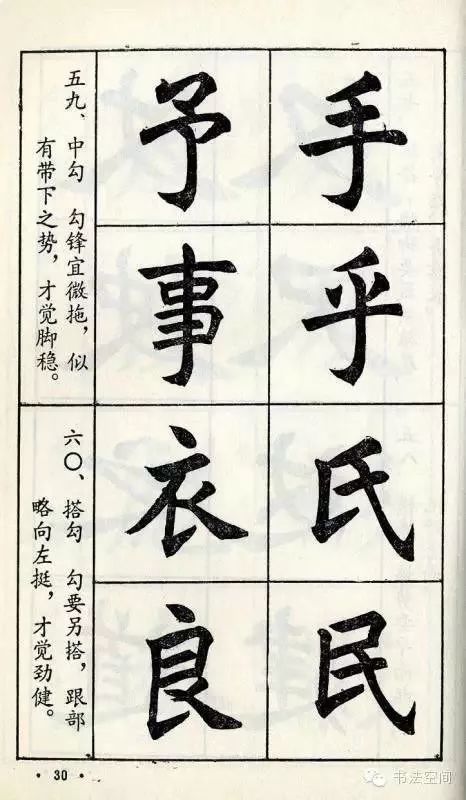 手
乎
氏
民
予
事
衣
良
五九、中勾 勾锋宜微拖，似
有带下之势，才觉脚稳。
六〇、搭勾 勾要另搭，跟部
略向左挺，才觉劲健。
·30·
书法空间